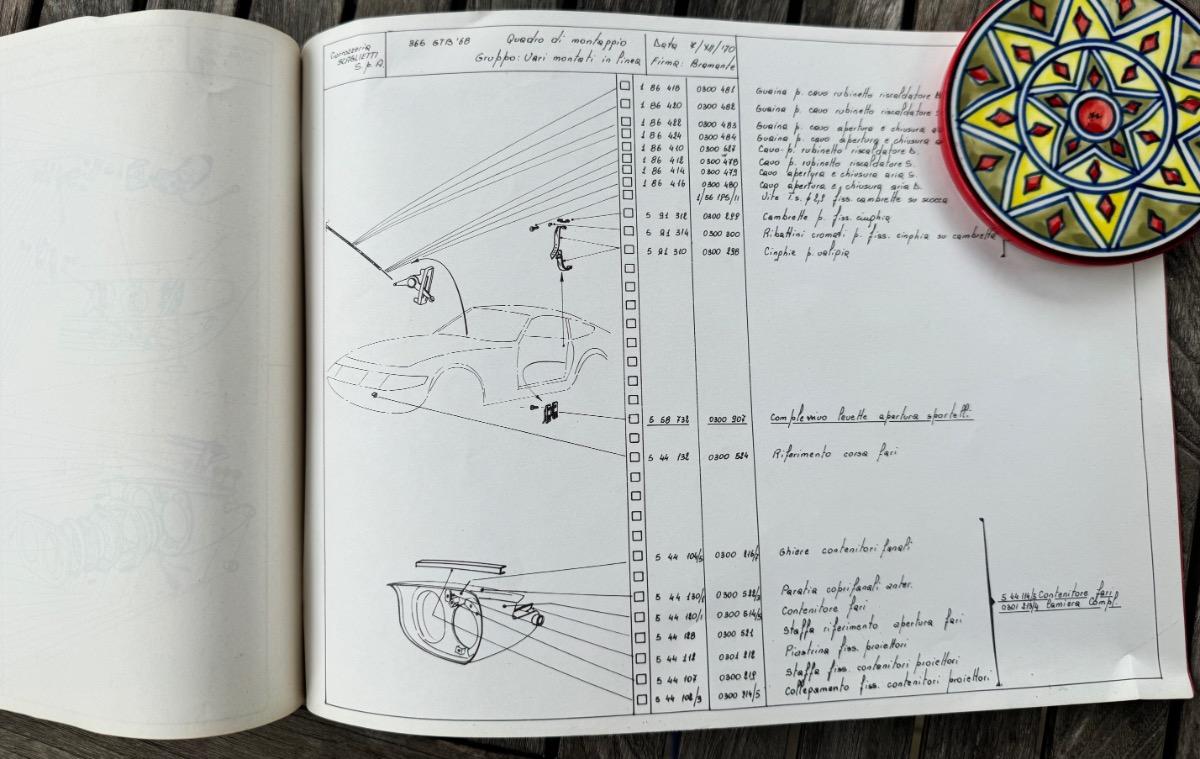 Carrozzeria
SCAGLIETTI
S.p.A.
366 GTB '68
Quadro di montaggio
Gruppo: Vari montati in linea
Data
Firma: Bramante
1 86 418 0300 481 Guaina p. cavo rubinetto riscaldatore
1 86 420 0300 482 Guaina p. cavo rubinetto riscaldatore
1 86 422 0300 483 Guaina p. cavo apertura e chiusura
1 86 424 0300 484 Guaina p. cavo apertura e chiusura
1 86 410 0300 Cavo p. rubinetto riscaldatore D.
1 86 412 0300 478 Cavo p. rubinetto riscaldatore S.
1 86 414 0300 479 Cavo apertura e chiusura aria S.
1 86 416 0300 480 Cavo apertura e chiusura aria D.
Vite T.s. fiss. cambrette su scocca
5 91 312 0300 299 Cambrette p. fiss. cinghia
5 91 314 0300 300 Ribattini cromati p. fiss. cinghia su cambretta
5 91 310 0300 298 Cinghie p. valigia
5 68 732 0300 907 Complessivo levette apertura sportelli
5 44 132 0300 524 Riferimento corsa fari
5 44 104/5 0300 216/7 Ghiere contenitori fanali
5 44 130/1 0300 522/3 Paratia coprifanali anter.
5 44 120/1 0300 514/5 Contenitore fari
5 44 128 0300 521 Staffa riferimento apertura fari
5 44 112 0301 212 Piastrina fiss. proiettori
5 44 107 0300 219 Staffa fiss. contenitori proiettori
5 44 102/3 0300 214/5 Collegamento fiss. contenitori proiettori
5 44 114/5 Contenitore fari
0301 213/4 Lamiera Compl.